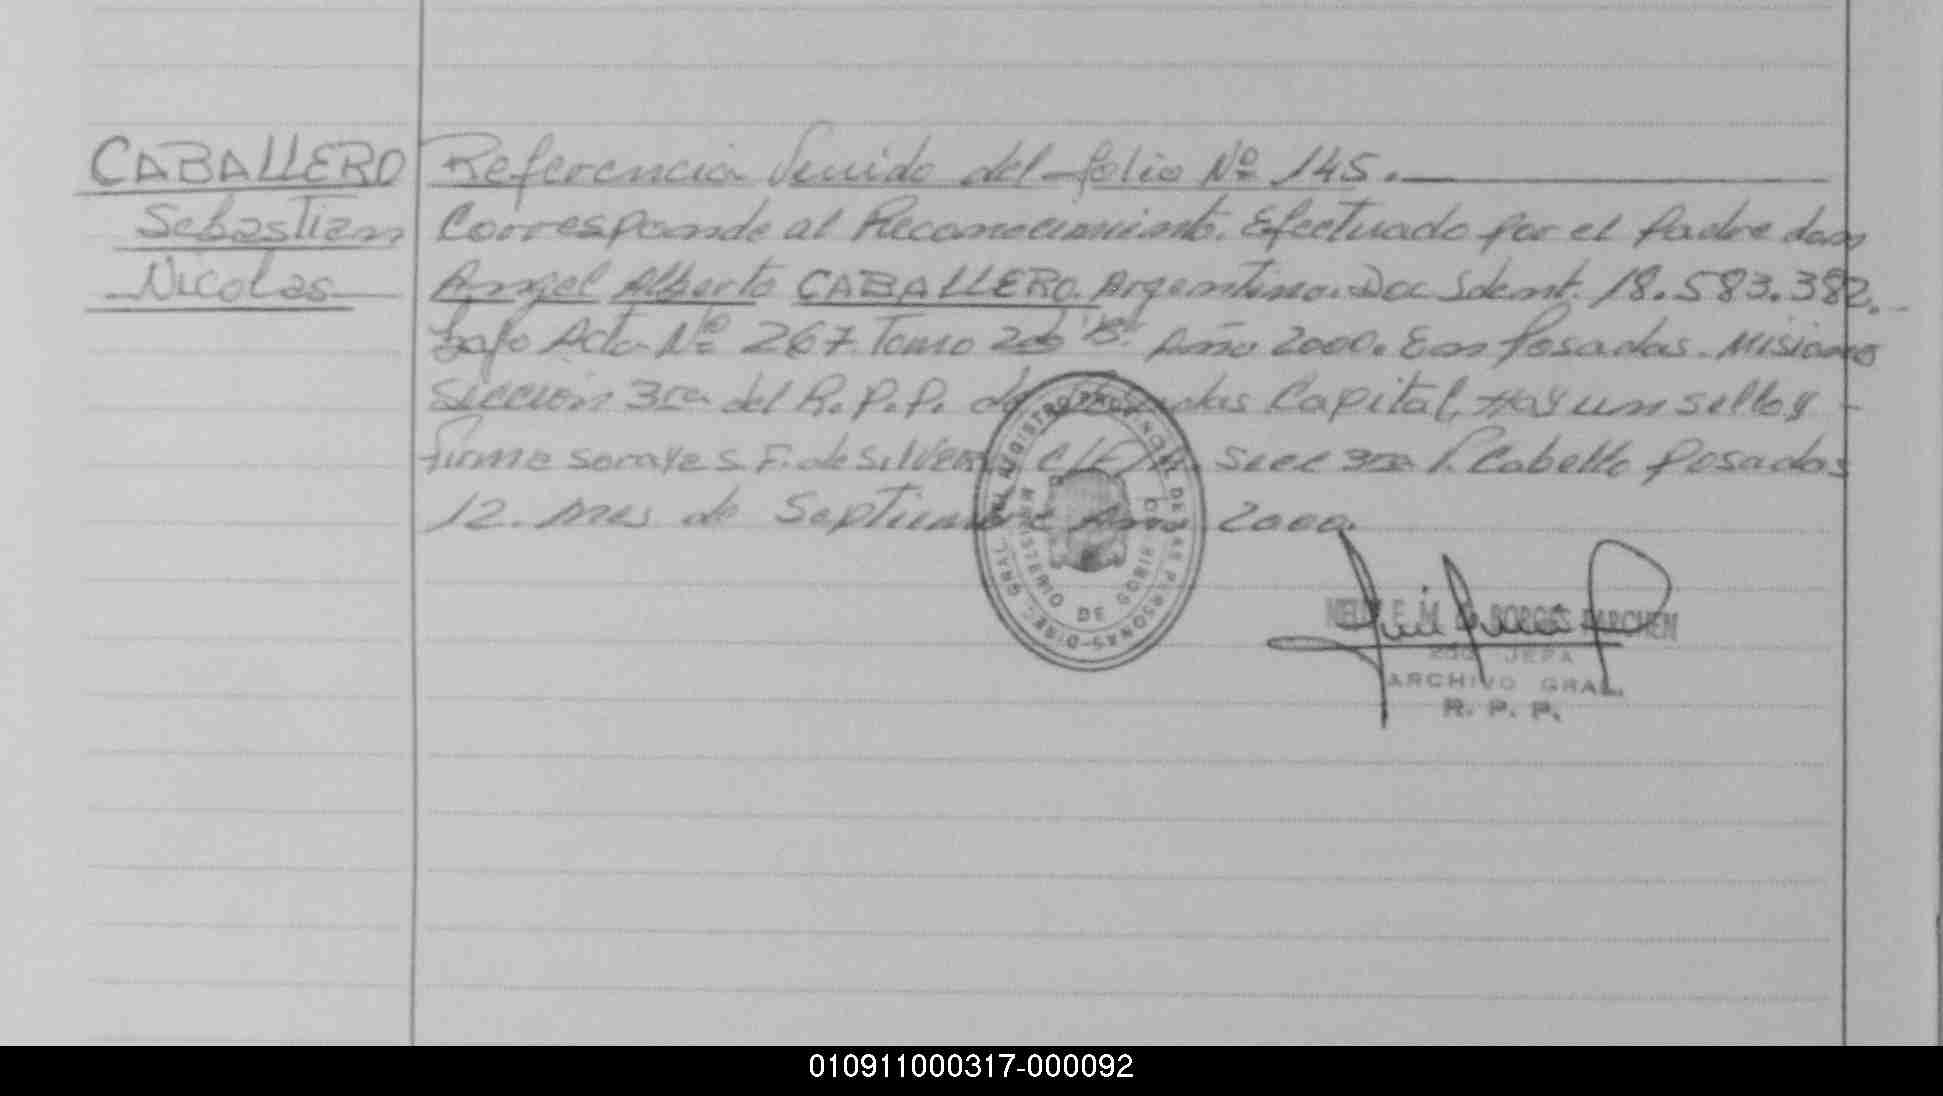 CABALLERO Referencia Venido del folio Nº 145.
Sebastian Corresponde al Reconocimiento. Efectuado por el Padre don
Nicolas Angel Alberto CABALLERO. Argentino. Doc Ident. 18.583.382.
bajo Acta Nº 267. Tomo 2do Año 2000. En Posadas. Misiones
Sección 3ra del R.P.P. de Posadas Capital, Hay un sello y
firma F. de Silvera Secc 3ra Posadas
12. mes de Septiembre Año 2000.
REGISTRO PROVINCIAL DE LAS PERSONAS-DIREC. GRAL.
MINISTERIO DE GOBIERNO
NELLY E. M. D. BORGES PARCHEN
2DO JEFA
ARCHIVO GRAL.
R. P. P.
010911000317-000092